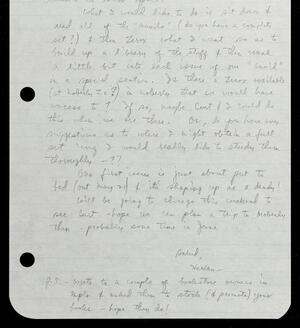 What I would like to do is sit down &
read all of the "        " (do you have a complete
set?) & then Xerox what I want so as to
build up a library of the stuff & then read
a little bit into each issue of our
in a special section. Is there a Xerox available
(at Moberly &c?) in Moberly that we would have
access to? If so, maybe Curt & I could do
this when we are there. Or, do you have any
suggestions as to where I might obtain a full
set? I would really like to study them
thoroughly — ??
Our first issue is just about put to
bed (out May 21) & it's shaping up as a dandy!
Will be going to Chicago this weekend to
see Curt - hope we can plan a trip to Moberly
then - probably some time in June.
P.S. - wrote to a couple of bookstore owners in
& asked them to stock (& promote) your
books - hope they do!